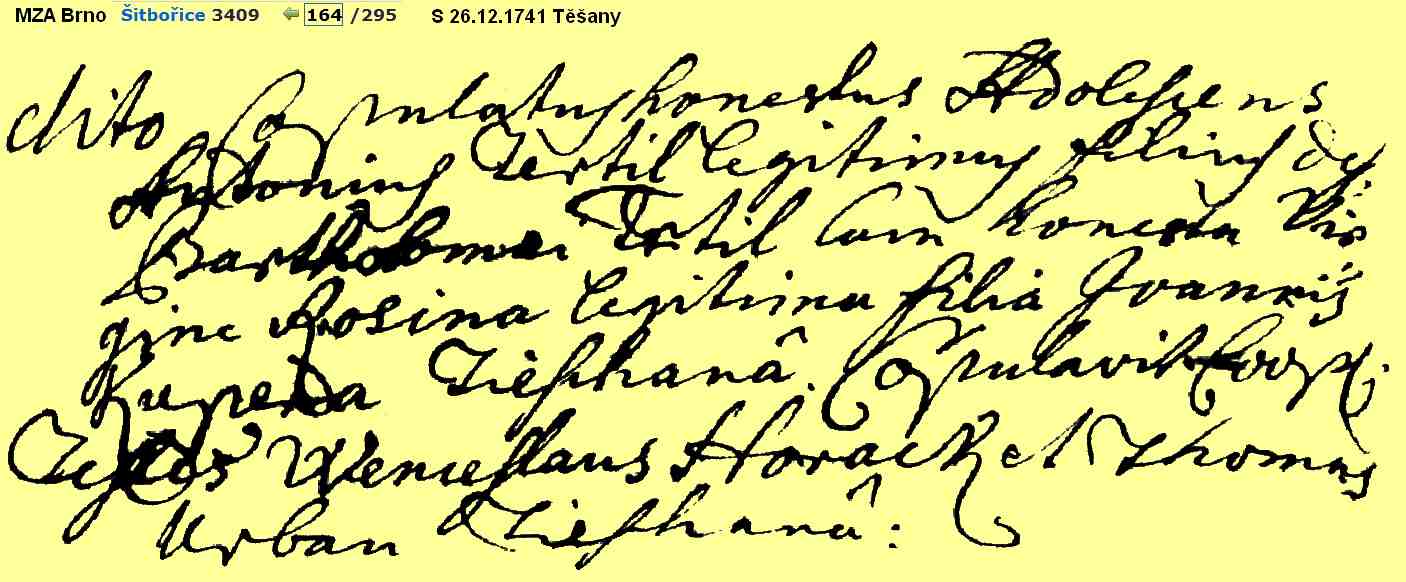 MZA Brno Šitbořice 3409 164 /295 S 26.12.1741 Těšany
dito Copulatus honestus Adolescens
Antonius Tertil legitimus filius
Bartholomei Tertil cum honesta Vir
gine Rosina legitima filia Joannis
Tiesshanâ. Copulavit Coop:
Testes Wenceslaus Horack et Thomas
Urban Tieshanâ: